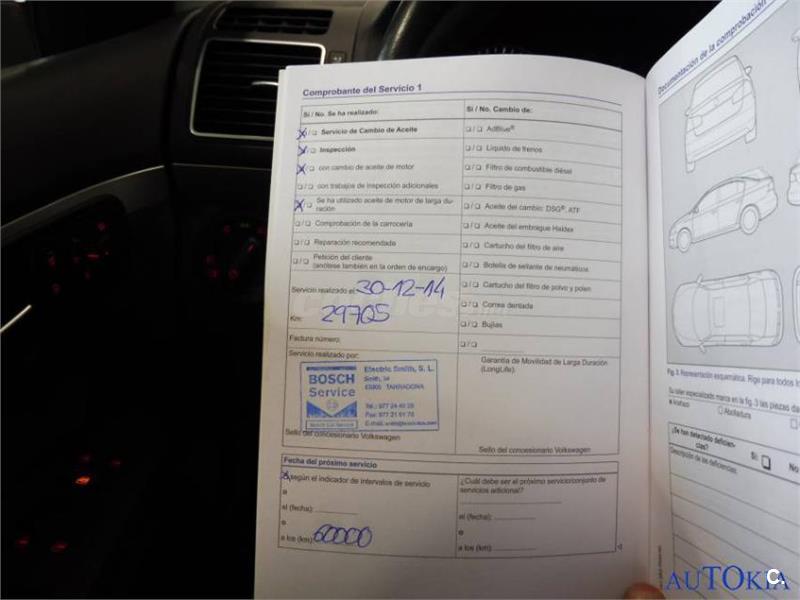 Comprobante del Servicio 1
Sí / No. Se ha realizado:
Servicio de Cambio de Aceite
Inspección
con cambio de aceite de motor
con trabajos de inspección adicionales
Se ha utilizado aceite de motor de larga du-
ración
Comprobación de la carrocería
Reparación recomendada
Petición del cliente
(anótese también en la orden de encargo)
Servicio realizado el: 30-12-14
Km: 29705
Factura número:
Servicio realizado por:
BOSCH
Service
Electric Smith, S. L.
Smith, 34
TARRAGONA
Tel.: 977 24 40 28
Fax: 977 21 91 76
Sello del concesionario Volkswagen
Sí / No. Cambio de:
AdBlue®
Líquido de frenos
Filtro de combustible diésel
Filtro de gas
Aceite del cambio: DSG®, ATF
Aceite del embrague Haldex
Cartucho del filtro de aire
Botella de sellante de neumáticos
Cartucho del filtro de polvo y polen
Correa dentada
Bujías
Garantía de Movilidad de Larga Duración
(LongLife):
Sello del concesionario Volkswagen
Fecha del próximo servicio
según el indicador de intervalos de servicio
o
el (fecha):
o
a los (km): 60000
¿Cuál debe ser el próximo servicio/conjunto de
servicios adicional?
el (fecha):
o
a los (km):
Documentación de la comprobación
Fig. 3 Representación esquemática. Rige para todos los
Su taller especializado marca en la fig. 3 las piezas da
Arañazo
Abolladura
¿Se han detectado deficien-
cias?
Sí:
No
Descripción de las deficiencias:
AUTOKIA